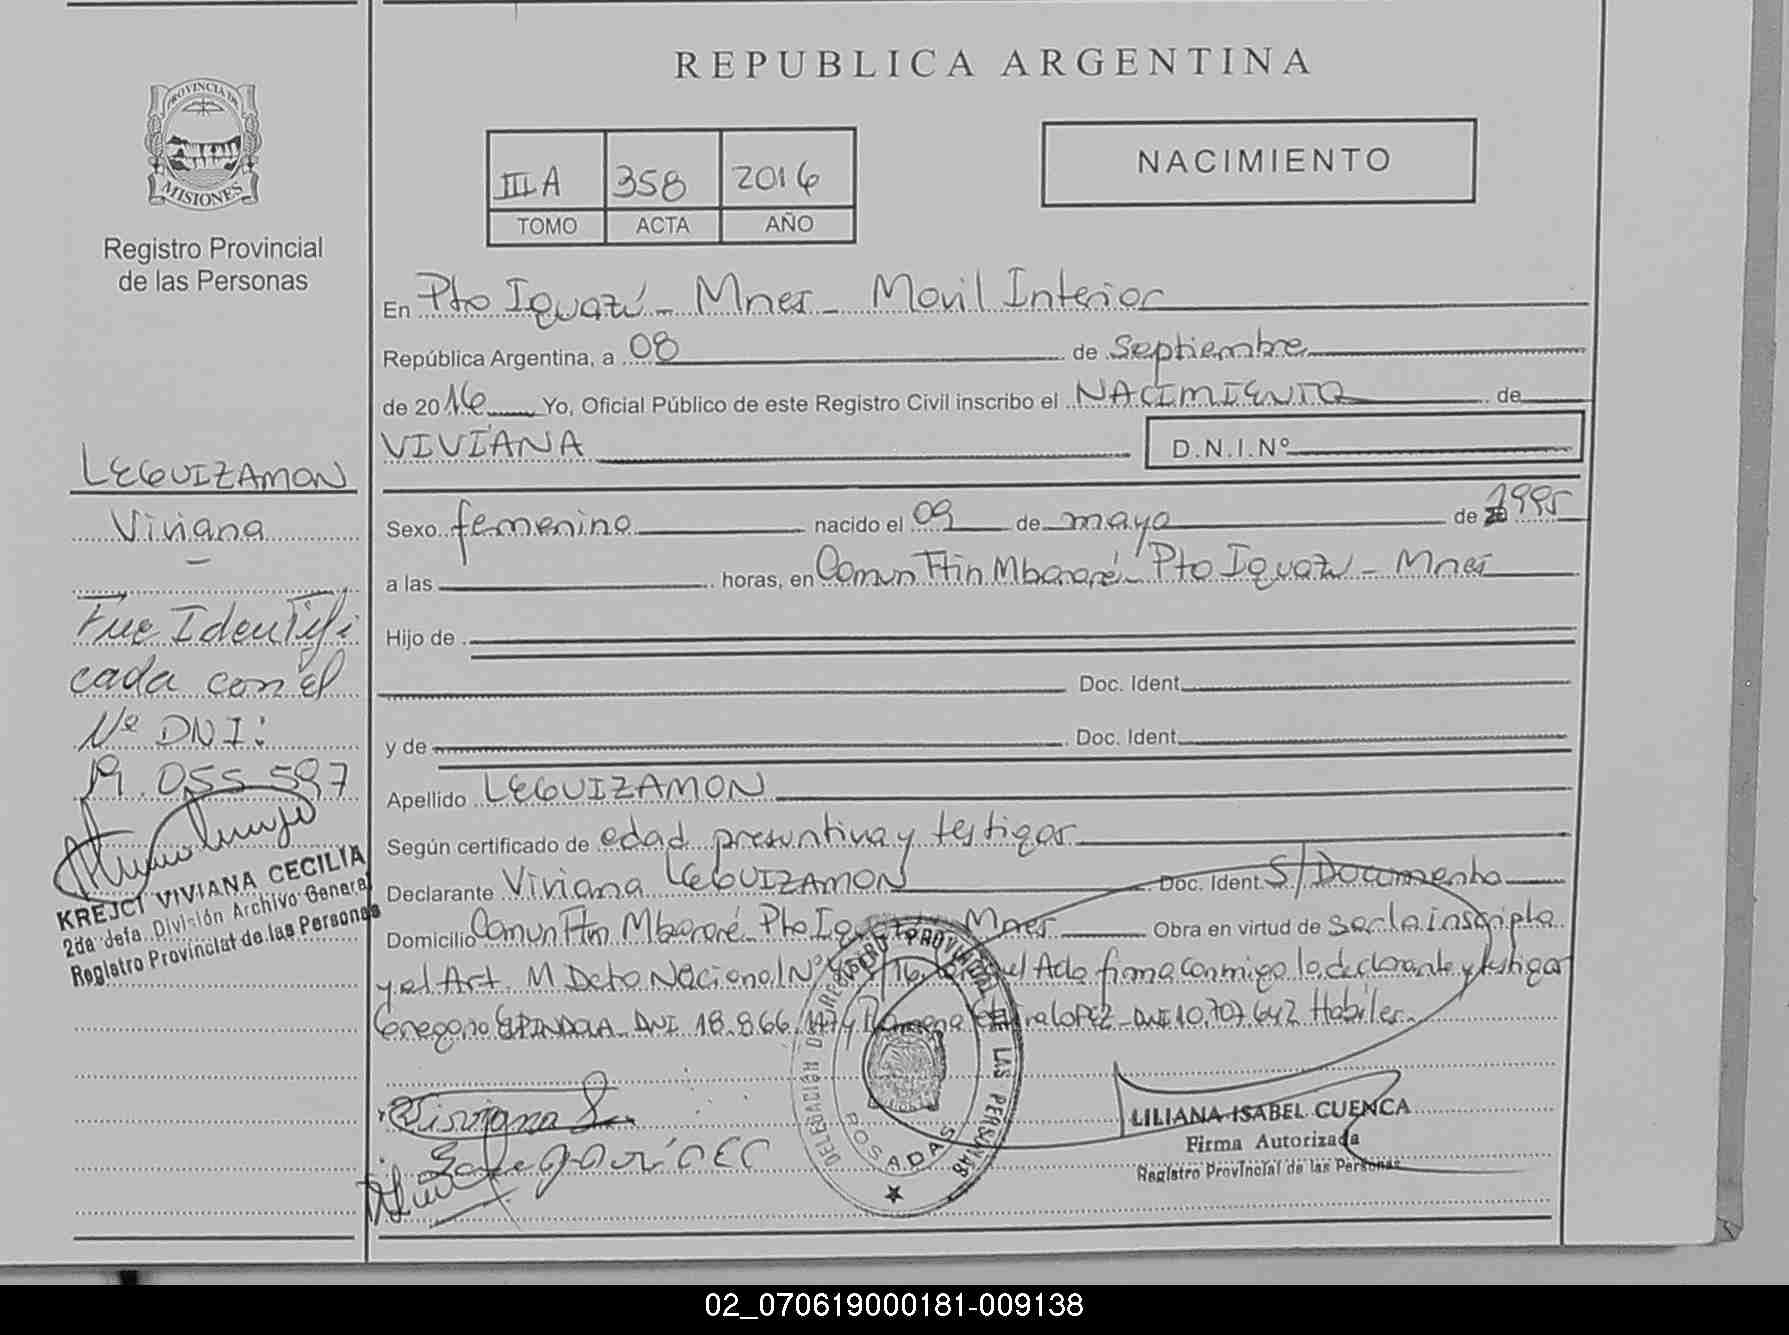 REPUBLICA ARGENTINA
PROVINCIA DE
MISIONES
Registro Provincial
de las Personas
III A 358 2016
TOMO ACTA AÑO
NACIMIENTO
En Pto Iguazú - Mnes - Movil Interior
República Argentina, a 08 de Septiembre
de 2016 Yo, Oficial Público de este Registro Civil inscribo el NACIMIENTO de
VIVIANA D.N.I.Nº
Sexo femenino nacido el 09 de mayo de 1995
a las horas, en Comun Ftin Mbororé - Pto Iguazu - Mnes
Hijo de
Doc. Ident.
y de Doc. Ident.
Apellido LEGUIZAMON
Según certificado de edad presuntiva y testigos
Declarante Viviana LEGUIZAMON Doc. Ident. S/Documento
Domicilio Comun Ftin Mbororé Pto Mnes Obra en virtud de ser la inscripta
y el Art. Dcto Nacional Nº /16, el Acta firma conmigo la declarante y testigos
Gregorio ESPINDOLA DNI 18.866. LOPEZ - DNI 10.707.642 Habiles
LEGUIZAMON
Viviana
Fue Identifi
cada con el
Nº DNI:
19.055.597
KREJCI VIVIANA CECILIA
2da Jefa División Archivo General
Registro Provincial de las Personas
Viviana L
DELEGACIÓN DE REGISTRO PROVINCIAL DE LAS PERSONAS
POSADAS
LILIANA ISABEL CUENCA
Firma Autorizada
Registro Provincial de las Personas
02_070619000181-009138